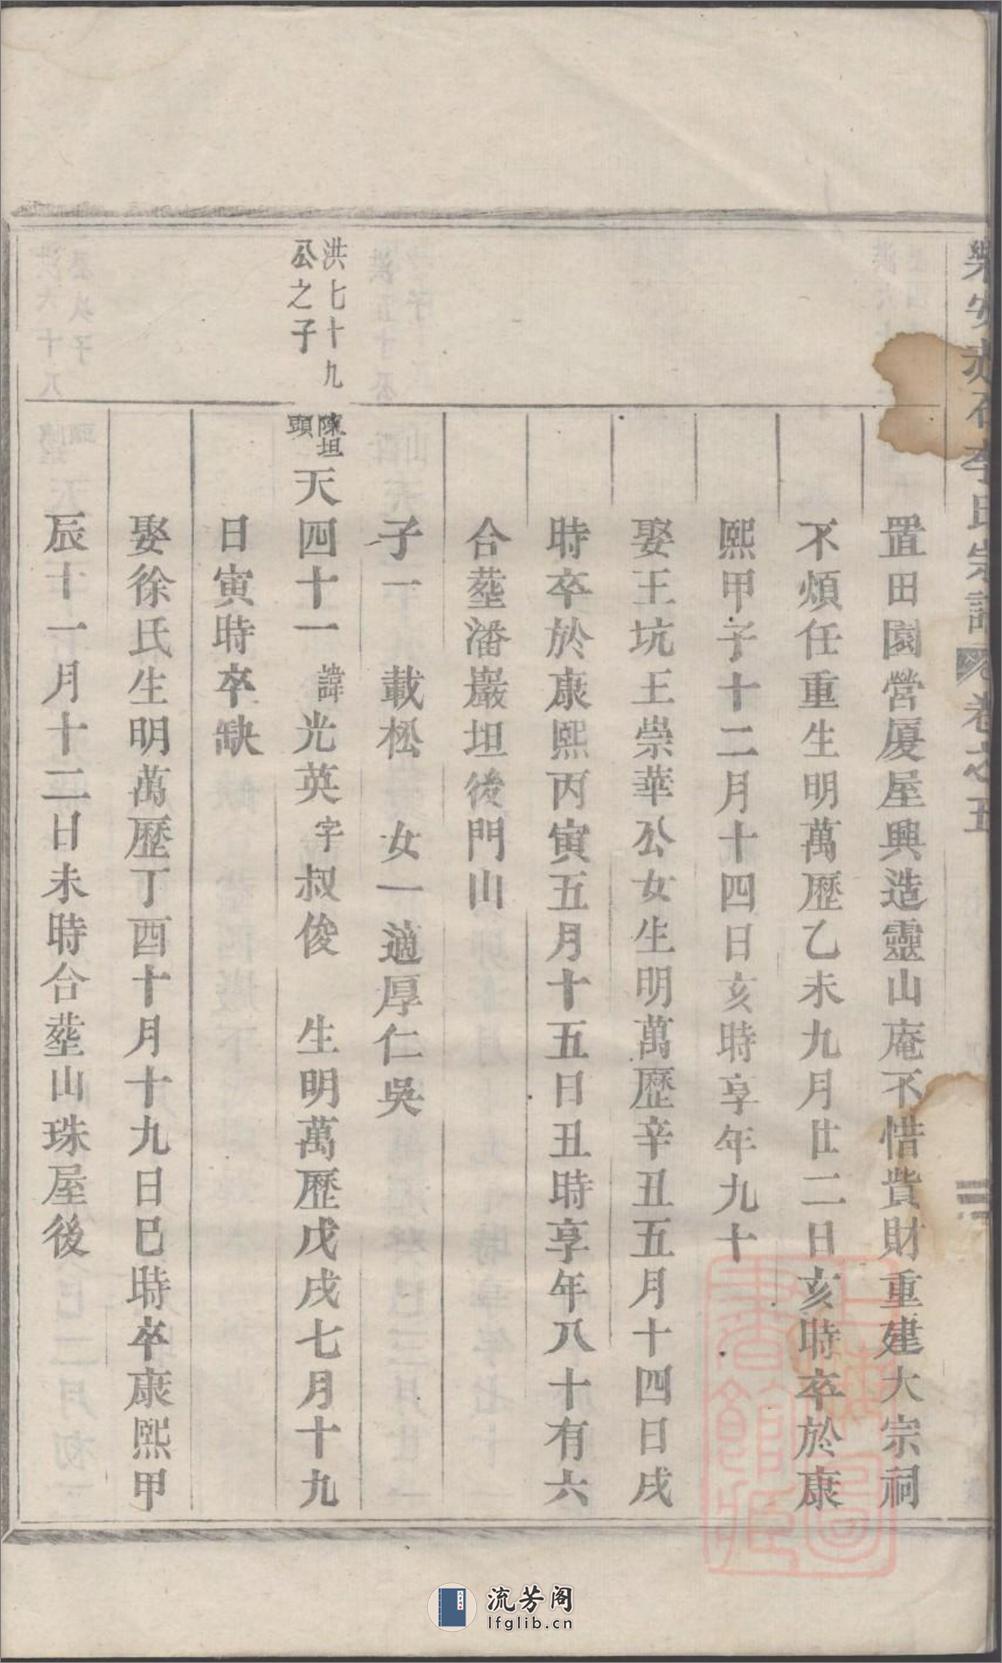 樂安
李氏宗譜
卷之五
置田園營厦屋興造靈山庵不惜貲財重建大宗祠
不煩任重生明萬歷乙未九月廿二日亥時卒於康
熙甲子十二月十四日亥時享年九十
娶王坑王崇華公女生明萬歷辛丑五月十四日戌
時卒於康熙丙寅五月十五日丑時享年八十有六
合塟潘巖坦後門山
子一 載松 女一適厚仁吳
洪七十九
公之子
陳坦
頭
天四十一 諱光英 字叔俊 生明萬歷戊戌七月十九
日寅時卒缺
娶徐氏生明萬歷丁酉十月十九日巳時卒康熙甲
辰十一月十二日未時合塟山珠屋後
流芳阁
lfglib.cn